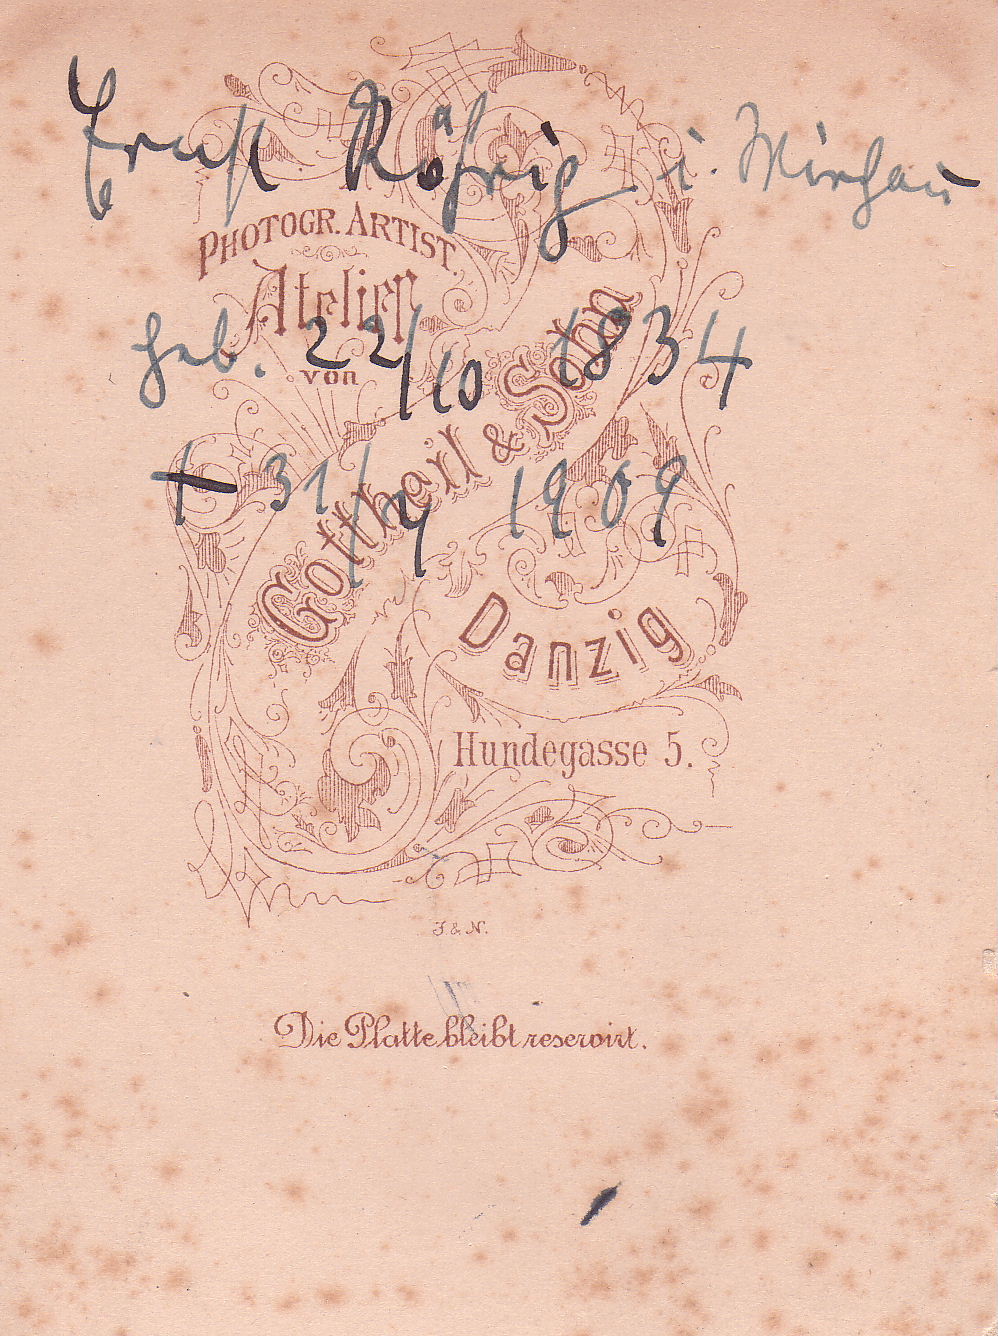 Ernst Röhrig i. Mirchau
PHOTOGR. ARTIST.
Atelier
geb. 22/10 1834
von
Gottheil & Sohn
† 31/4 1909
Danzig
Hundegasse 5.
J. & N.
Die Platte bleibt reservirt.